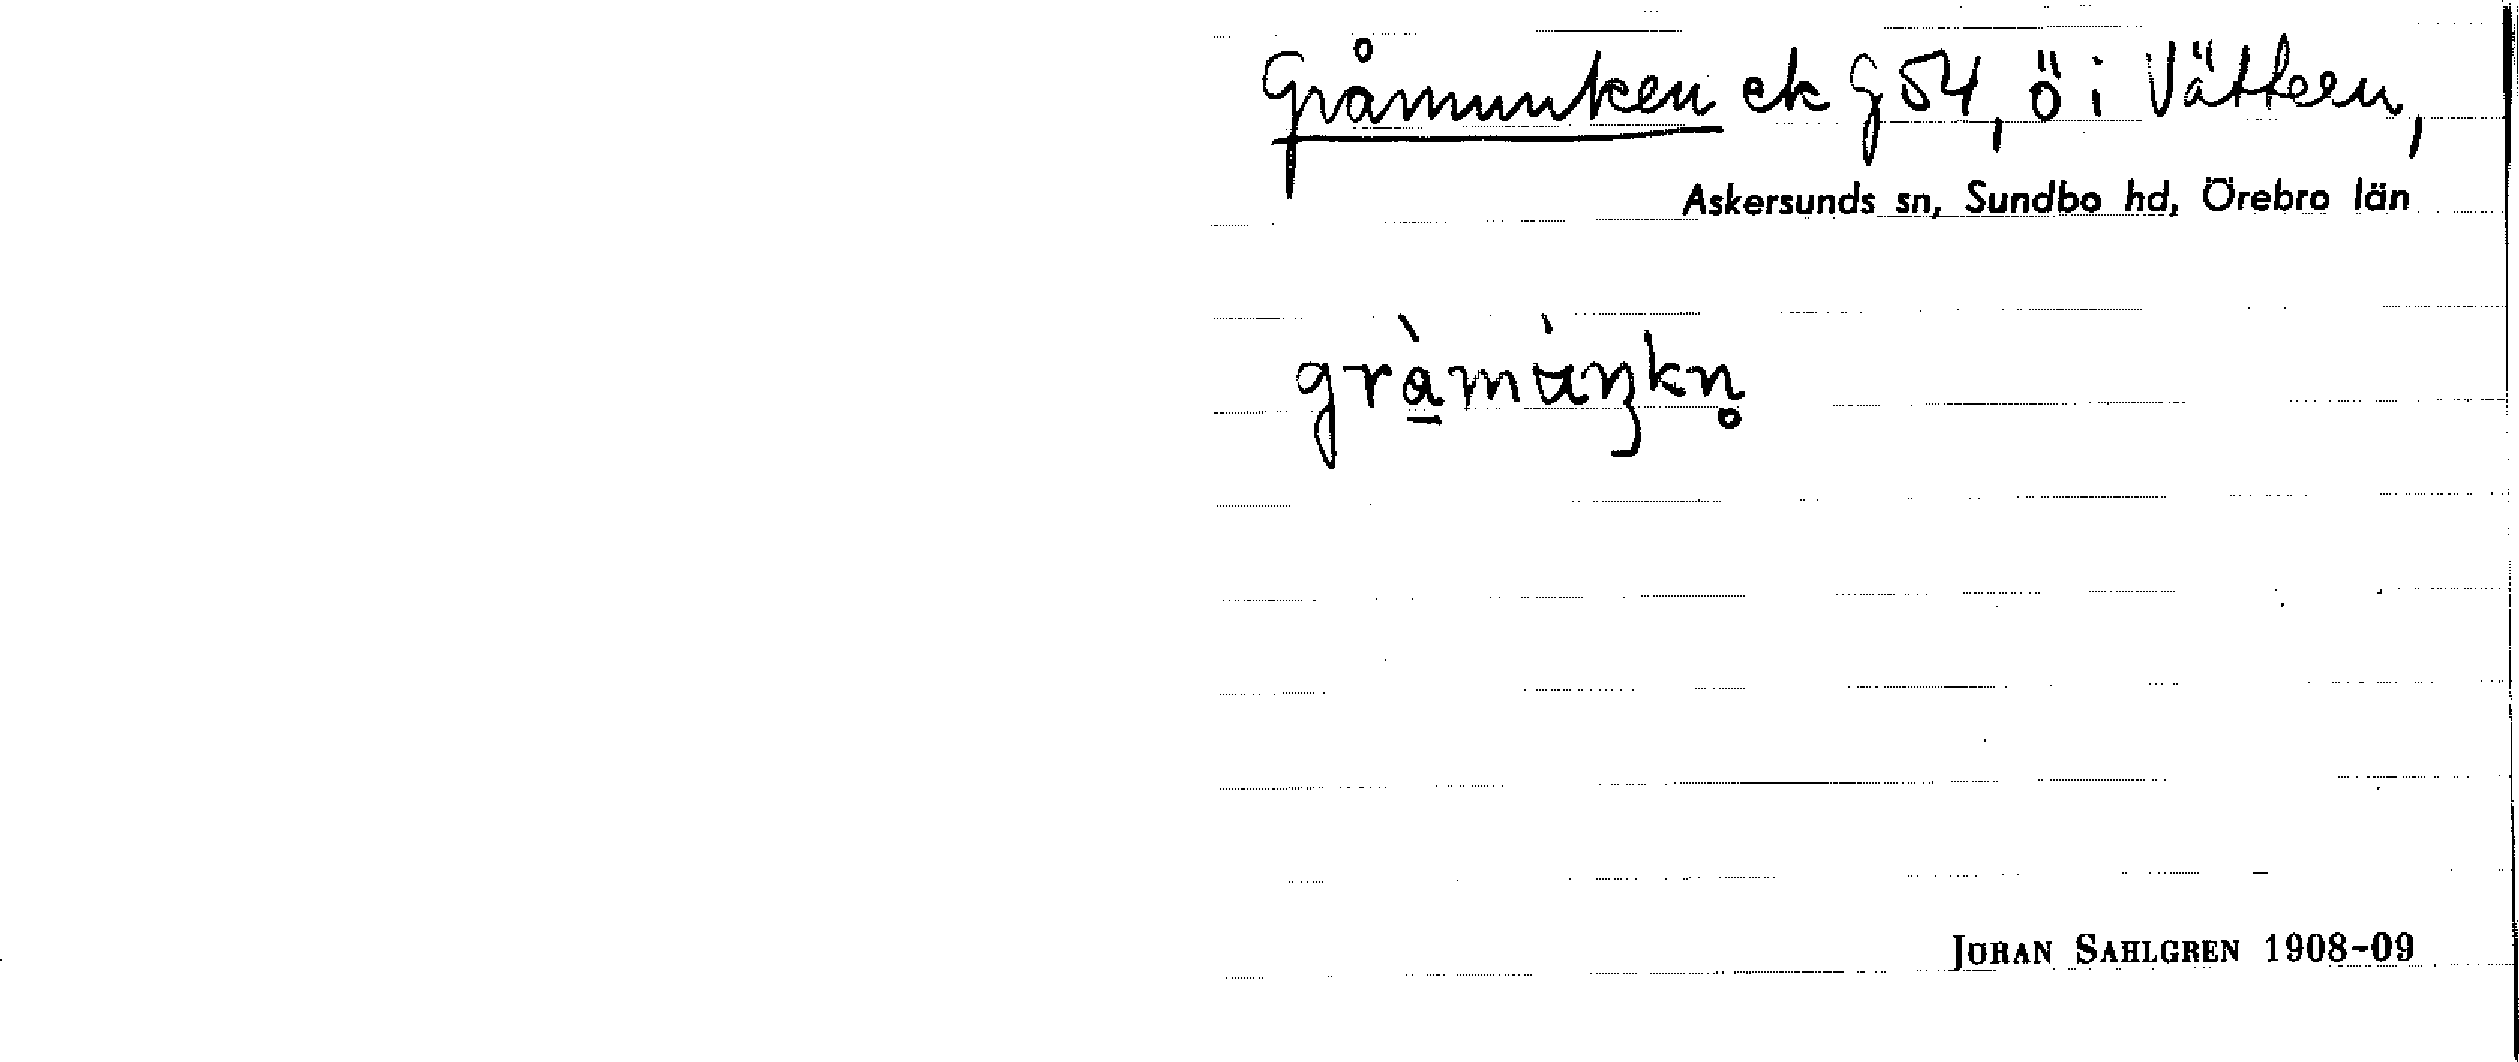 Gråmunken ek G 54, ö i Vättern,
Askersunds sn, Sundbo hd, Örebro län
grà̱mùŋkn̥
JORAN SAHLGREN 1908-09